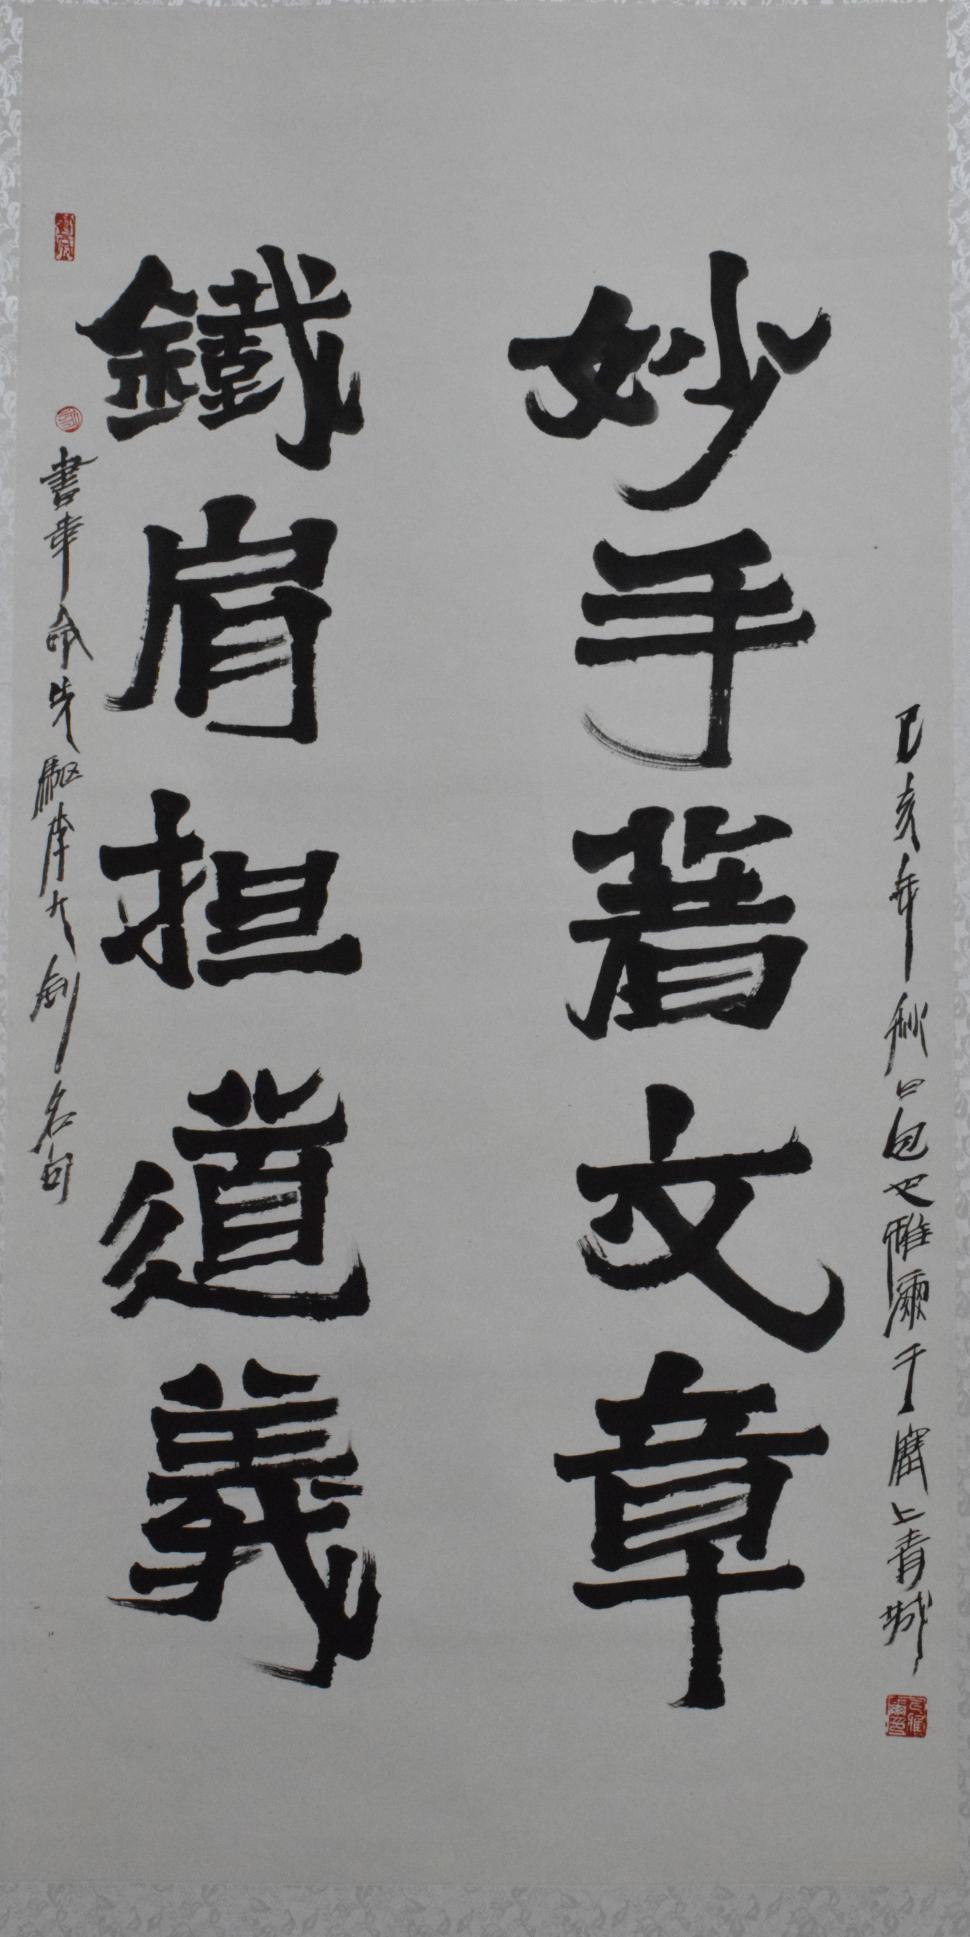 鐵肩担道義
妙手著文章
書革命先驅李大釗名句
己亥年秋日包也雅爾于塞上青城